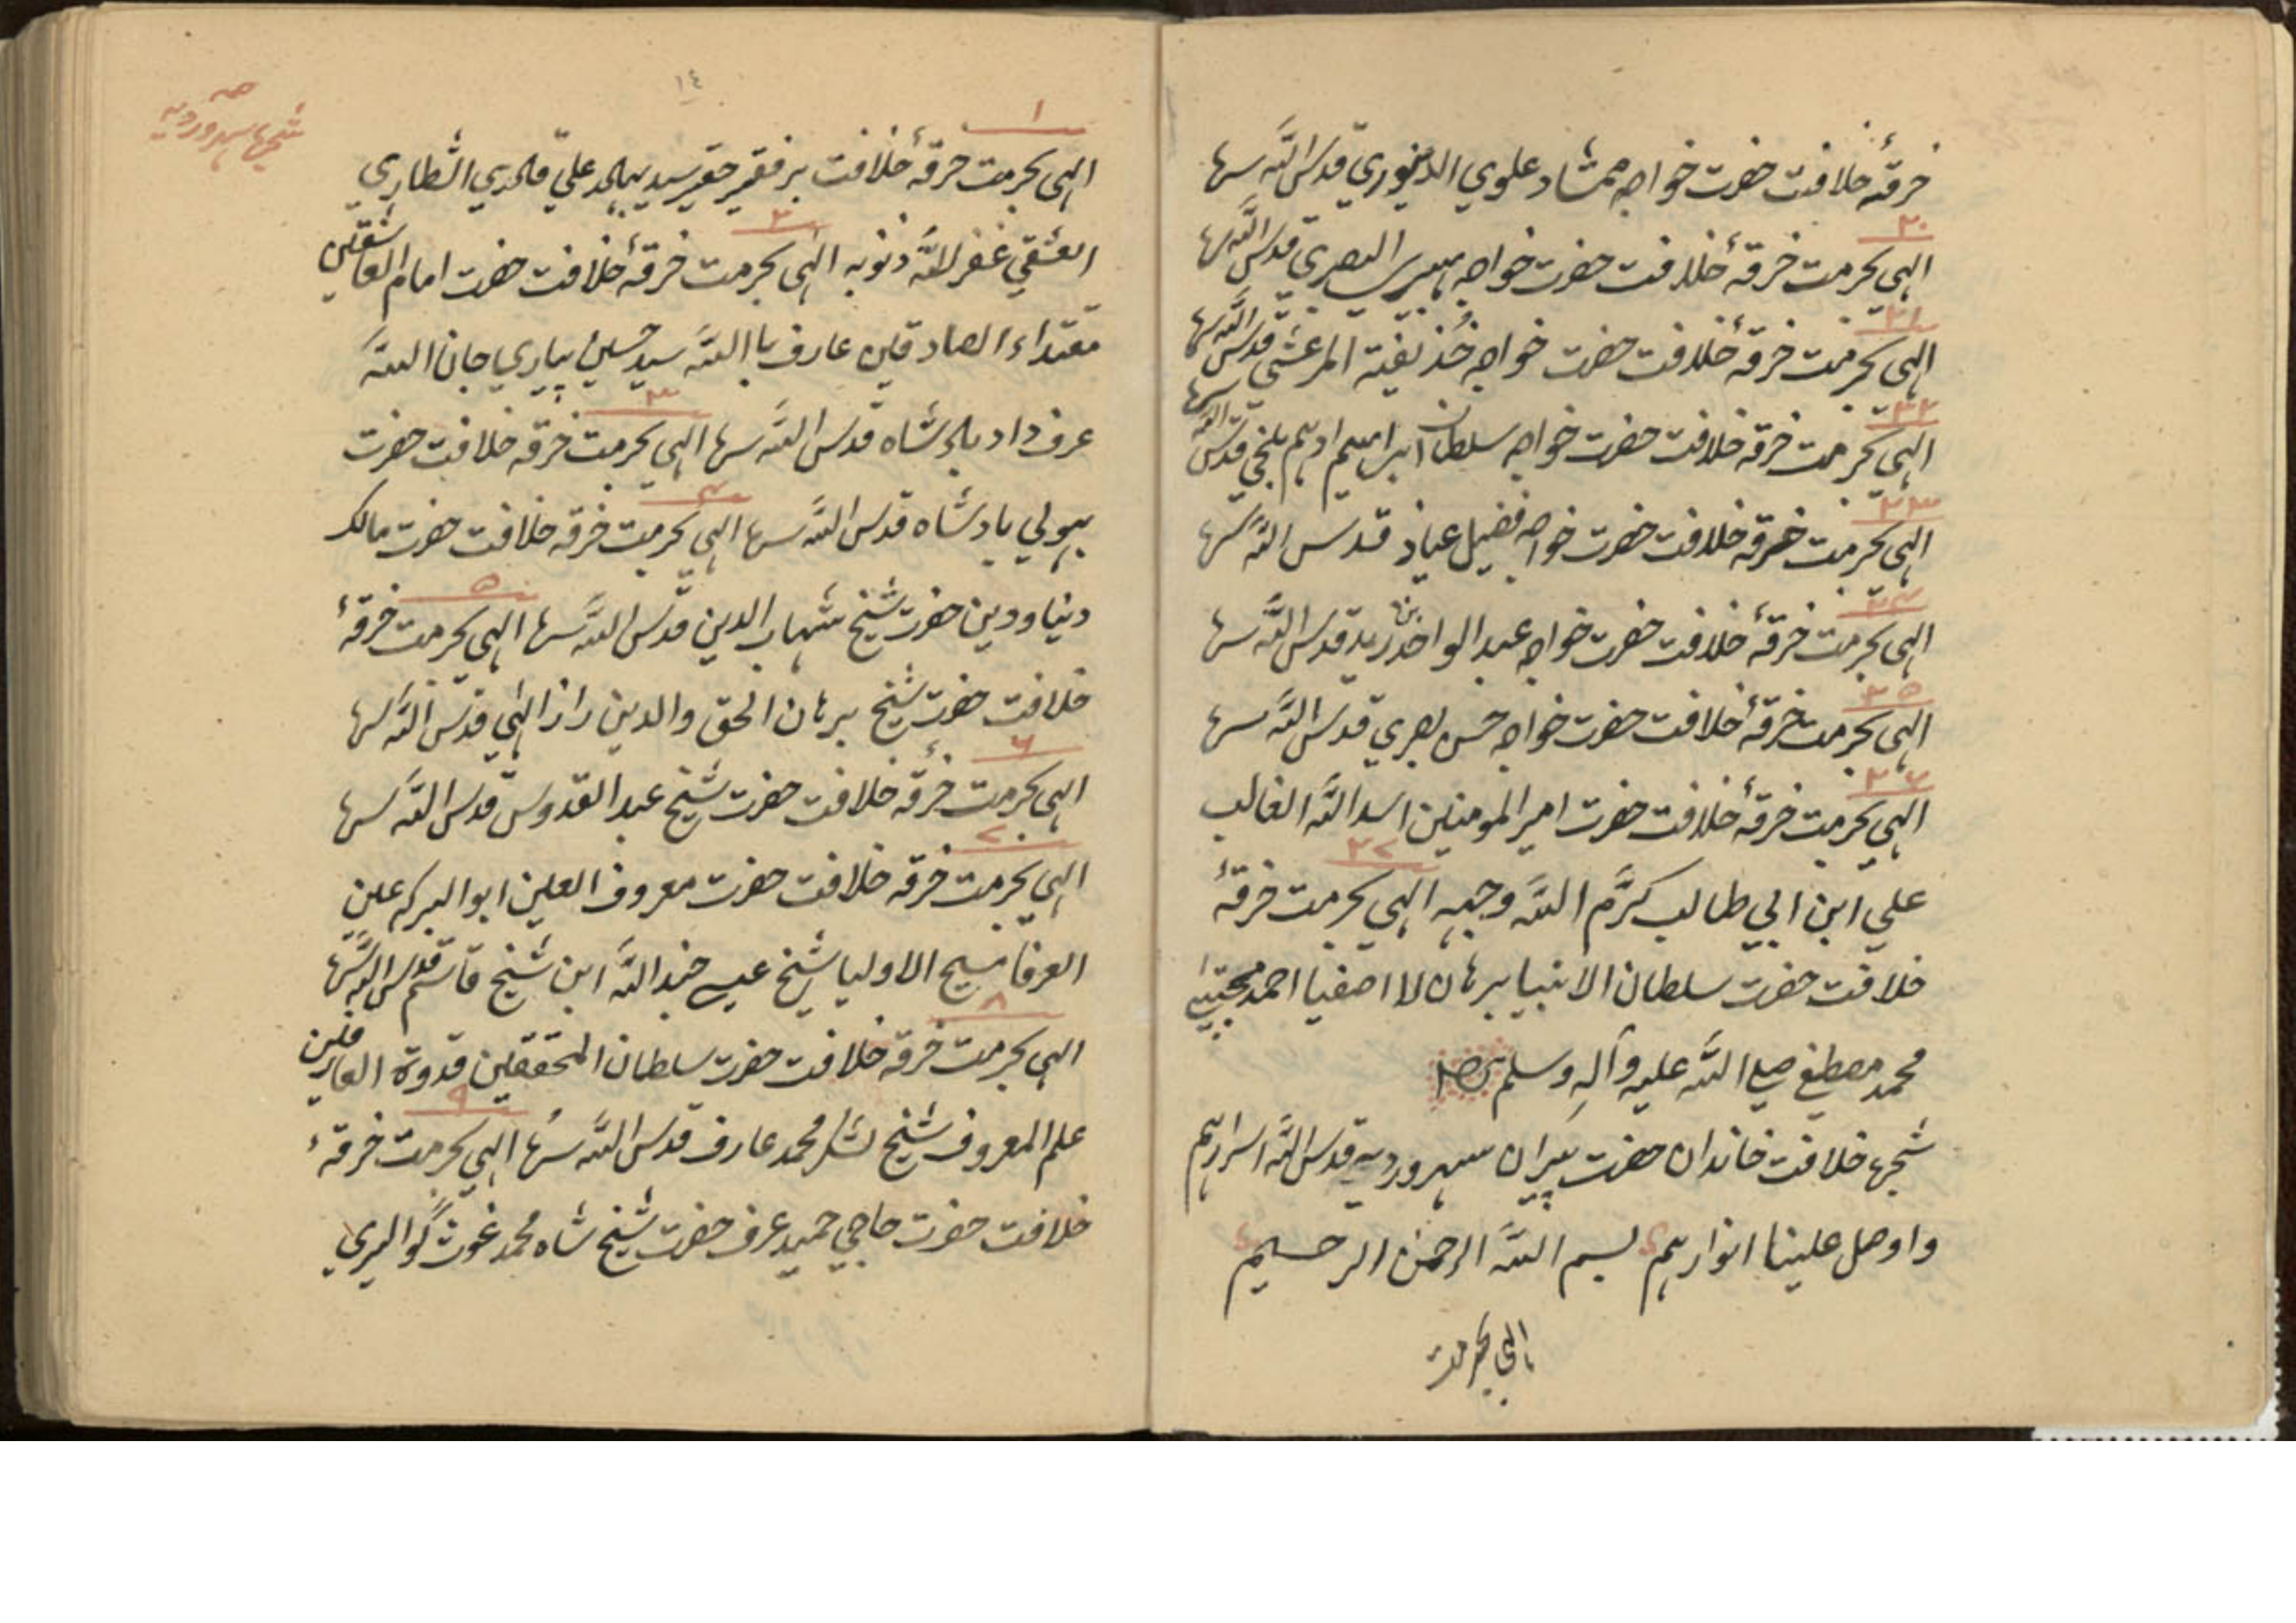 خرقهٔ خلافت حضرت خواجه ممشاد علوي الدینوري قدس اللّه سرها
۳۰
الهی بحرمت خرقهٔ خلافت حضرت خواجه هبیرۃ البصري قدس اللّه سرها
۳۱
الهی بحرمت خرقهٔ خلافت حضرت خواجه خُذیفة المرعشي قدس اللّه سرها
۳۲
الهی بحرمت خرقه خلافت حضرت خواجه سلطان ابراهیم ادهم بلخي قدس اللّه سرها
۳۳
الهی بحرمت خرقه خلافت حضرت خواجه فضیل عیاذ قدس اللّه سرها
۳۴
الهی بحرمت خرقهٔ خلافت حضرت خواجه عبد الواحد بن زید قدس اللّه سرها
۳۵
الهی بحرمت خرقهٔ خلافت حضرت خواجه حسن بصري قدس اللّه سرها
۳۶
الهی بحرمت خرقهٔ خلافت حضرت امیر المومنین اسد اللّه الغالب
۳۷
علي ابن ابي طالب کرَّم اللّه وجهه الهی بحرمت خرقهٔ
خلافت حضرت سلطان الانبیا برهان لا اصفیا احمد مجتبیٰ
محمد مصطفے صلے اللّه علیه وآلهِ وسلم
شجرۀ خلافت خاندان حضرت پیران سهروردیه قدس اللّه اسرارهم
و اوصل علینا انوارهم بسم اللّه الرحمن الرحیم
الهی بحرمت
۱۴
شجرۀ سهروردیه
۱
الهی بحرمت خرقهٔ خلافت بر فقیر حقیر سید علي قادري الشطاري
۲
العشقي غفر اللّه ذنوبه الهی بحرمت خرقهٔ خلافت حضرت امام العاشقین
مقتداء الصادقین عارف باالله سید حسین پیاري جان اللّه
۳
عرف داد شاه قدس اللّه سرها الهی بحرمت خرقه خلافت حضرت
۴
بهولي بادشاه قدس اللّه سرها الهی بحرمت خرقه خلافت حضرت مالک
۵
دنیا و دین حضرت شیخ شهاب الدین قدس اللّه سرها الهی بحرمت خرقهٔ
خلافت حضرت شیخ برهان الحق والدین راز الهٰي قدس اللّه سرها
۶
الهی بحرمت خرقهٔ خلافت حضرت شیخ عبد القدوس قدس اللّه سرها
۷
الهی بحرمت خرقه خلافت حضرت معروف العلین ابو البرکه عین
العرفا مسیح الاولیا شیخ عیسے جند اللّه ابن شیخ قاسم قدس اللّه سرها
۸
الهی بحرمت خرقه خلافت حضرت سلطان المحققین قدوة العارفین
۹
علم المعروف شیخ لشکر محمد عارف قدس اللّه سرُها الهی بحرمت خرقهٔ
خلافت حضرت حاجي حمید عرف حضرت شیخ شاه محمد غوث گوالیري